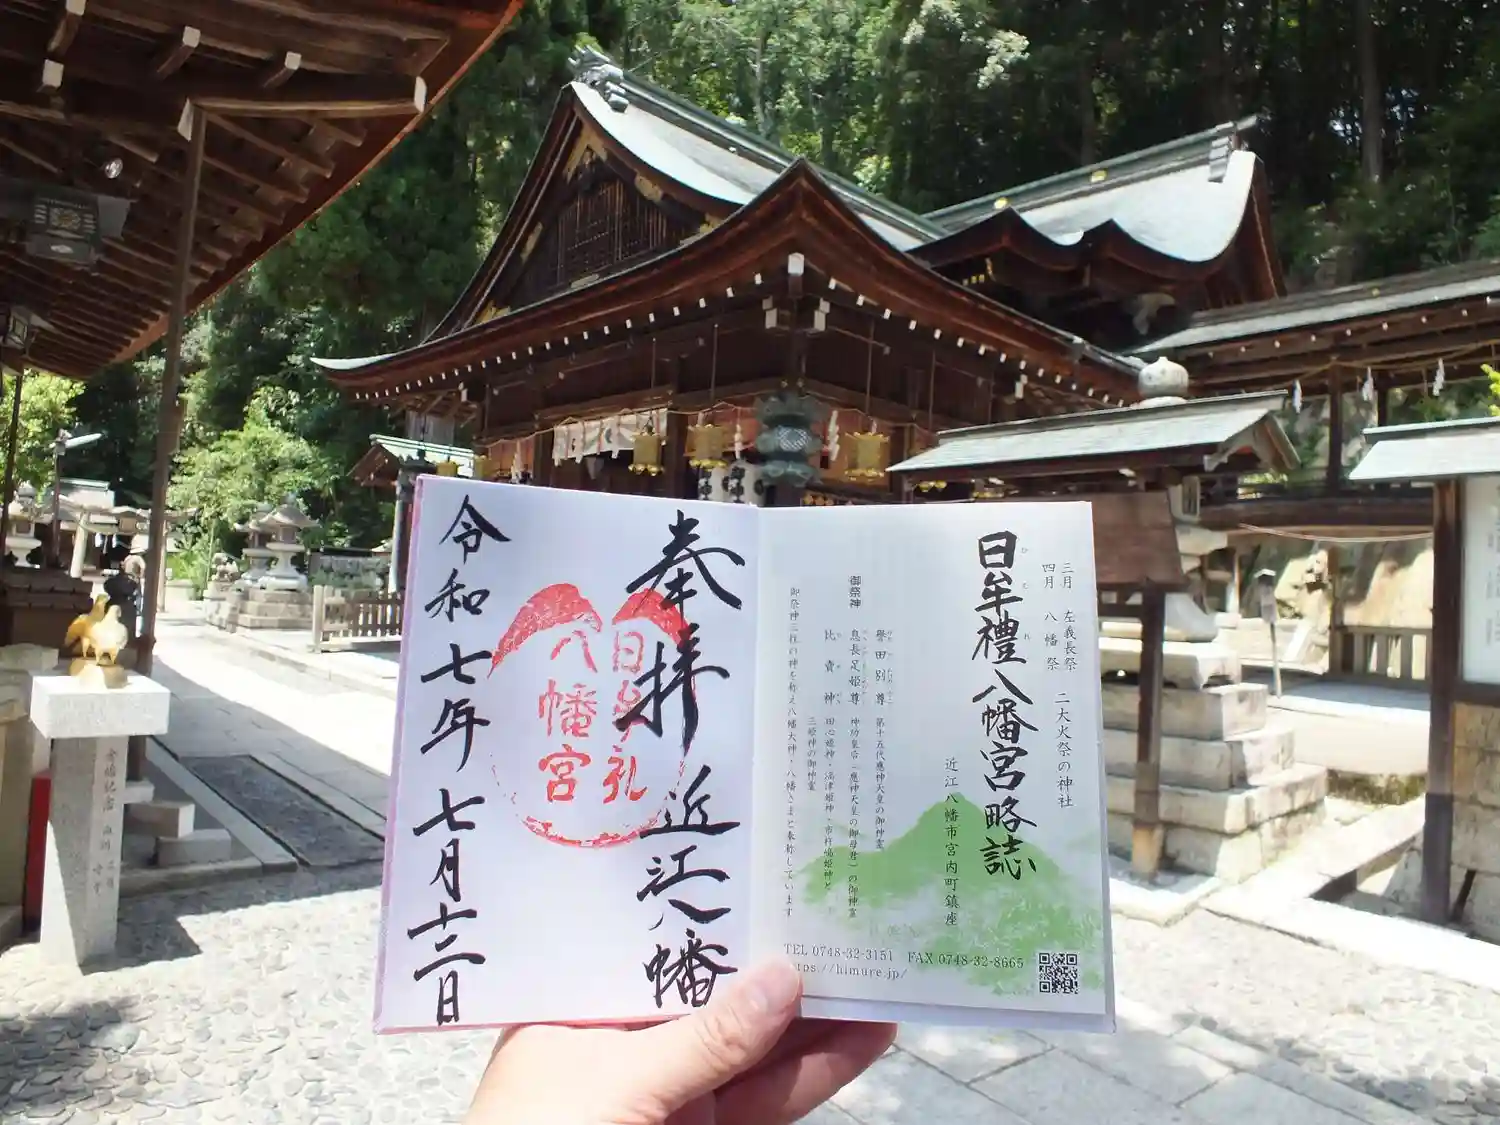 奉拝
近江八幡
日牟礼
八幡宮
令和七年七月十二日
三月 左義長祭
四月 八幡祭
二大火祭の神社
日牟禮八幡宮略誌
ひむれ
近江八幡市宮内町鎮座
御祭神
誉田別尊 第十五代應神天皇の御神霊
息長足姫尊 神功皇后(應神天皇の御母君)の御神霊
比賣神 田心姫神・湍津姫神・市杵嶋姫神と
三姫神の御神霊
御祭神三柱の神を称え八幡大神・八幡さまと奉称しています
TEL 0748-32-3151 FAX 0748-32-8665
https://himure.jp/